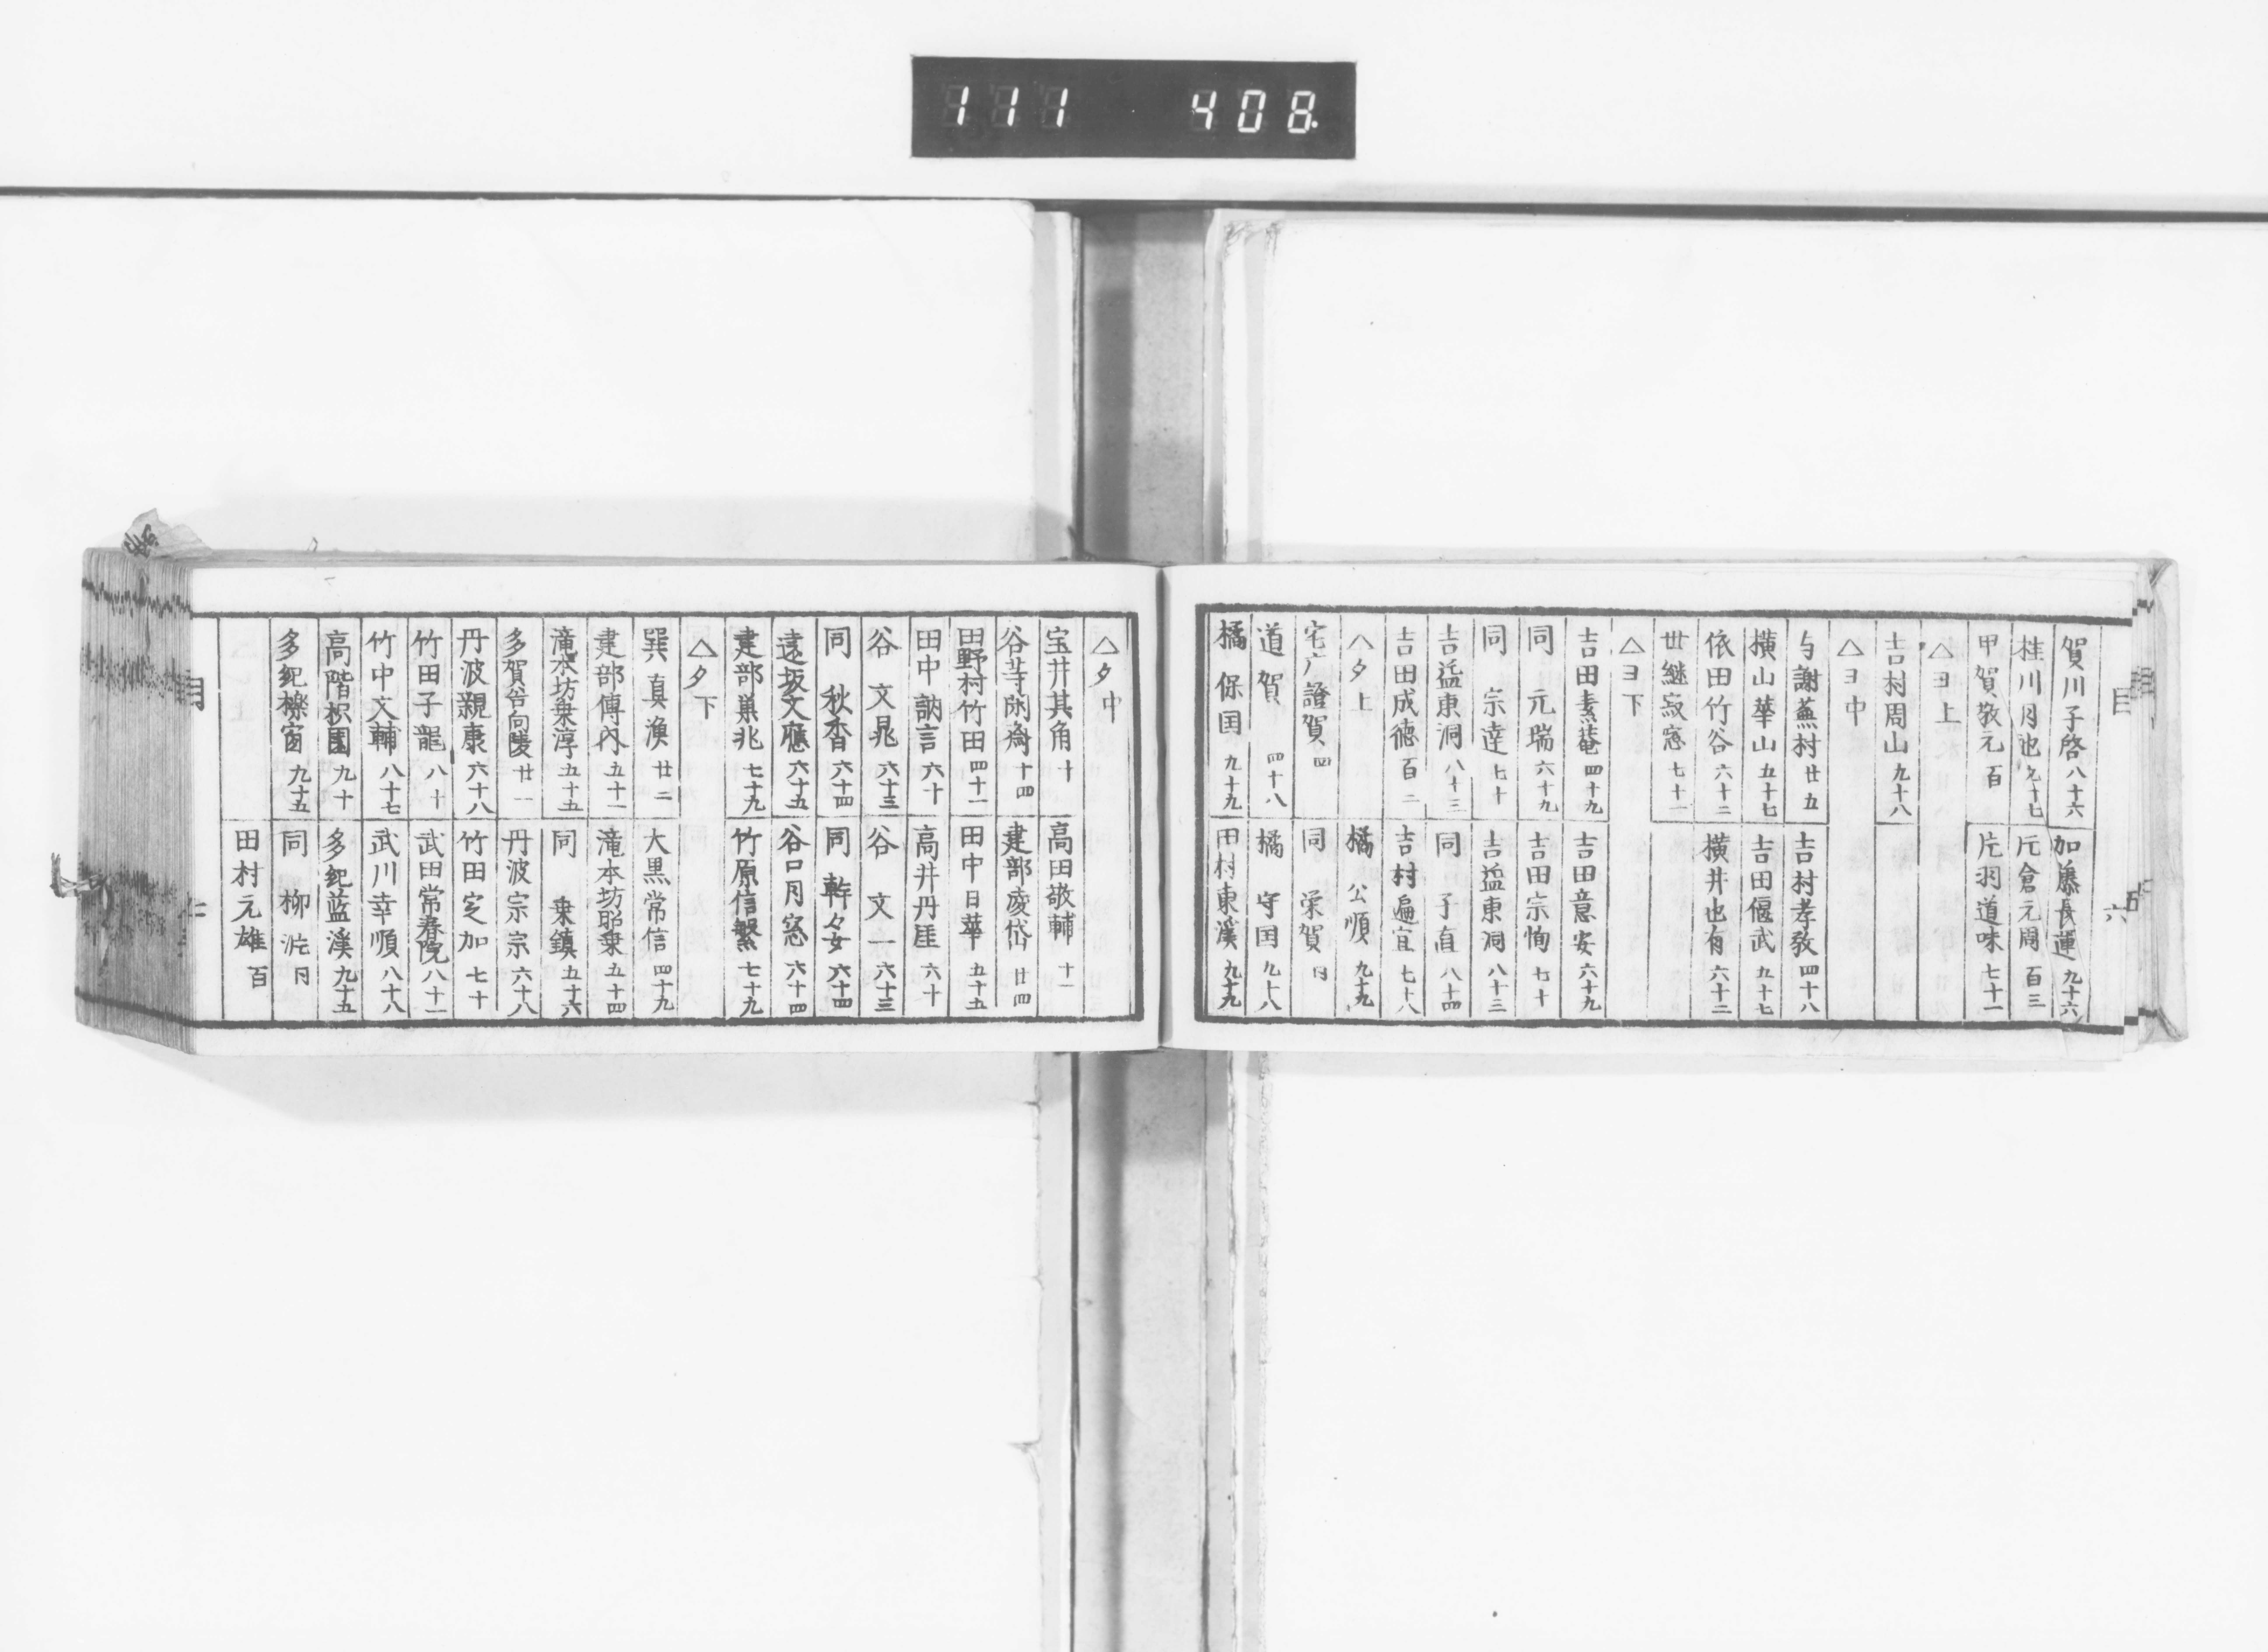 111 408.
目 六
賀川子啓 八十六 加藤長運 九十六
桂川月池 九十七 片倉元周 百三
甲賀敬元 百 片羽道味 七十一
△ヨ上
吉村周山 九十八
△ヨ中
与謝蕪村 廿五 吉村孝敬 四十八
横山華山 五十七 吉田偃武 九十七
依田竹谷 六十二 横井也有 六十二
世継寂窓 七十一
△ヨ下
吉田素菴 四十九 吉田意安 六十九
同 元瑞 六十九 吉田宗恂 七十
同 宗達 七十 吉益東洞 八十三
吉益東洞 八十三 同 子直 八十四
吉田成徳 百二 吉村遍宜 七十八
△タ上 橘 公順 九十九
宅广證賀 四 同 栄賀 同
道賀 四十八 橘 守国 九十八
橘 保国 九十九 田村東溪 九十九
△タ中
宝井其角 十 高田敬輔 十一
谷寺 十四 建部凌岱 廿四
田野村竹田 四十一 田中日華 五十五
田中訥言 六十 高井丹厓 六十
谷 文晁 六十三 谷 文一 六十三
同 秋香 六十四 同 幹々女 六十四
遠坂文應 六十五 谷口月窓 六十四
建部巣兆 七十九 竹原信繁 七十九
△タ下
巽 真漁 廿二 大黒常信 四十九
建部傳内 五十一 滝本坊昭乗 五十四
滝本坊乗淳 五十五 同 乗鎮 五十六
多賀谷向陵 廿一 丹波宗宗 六十八
丹波親康 六十八 竹田定加 七十
竹田子龍 八十 武田常春院 八十一
竹中文輔 八十七 武川幸順 八十八
高階枳園 九十 多紀蓝溪 九十五
多紀櫟窗 九十五 同 柳沜 同
田村元雄 百
目